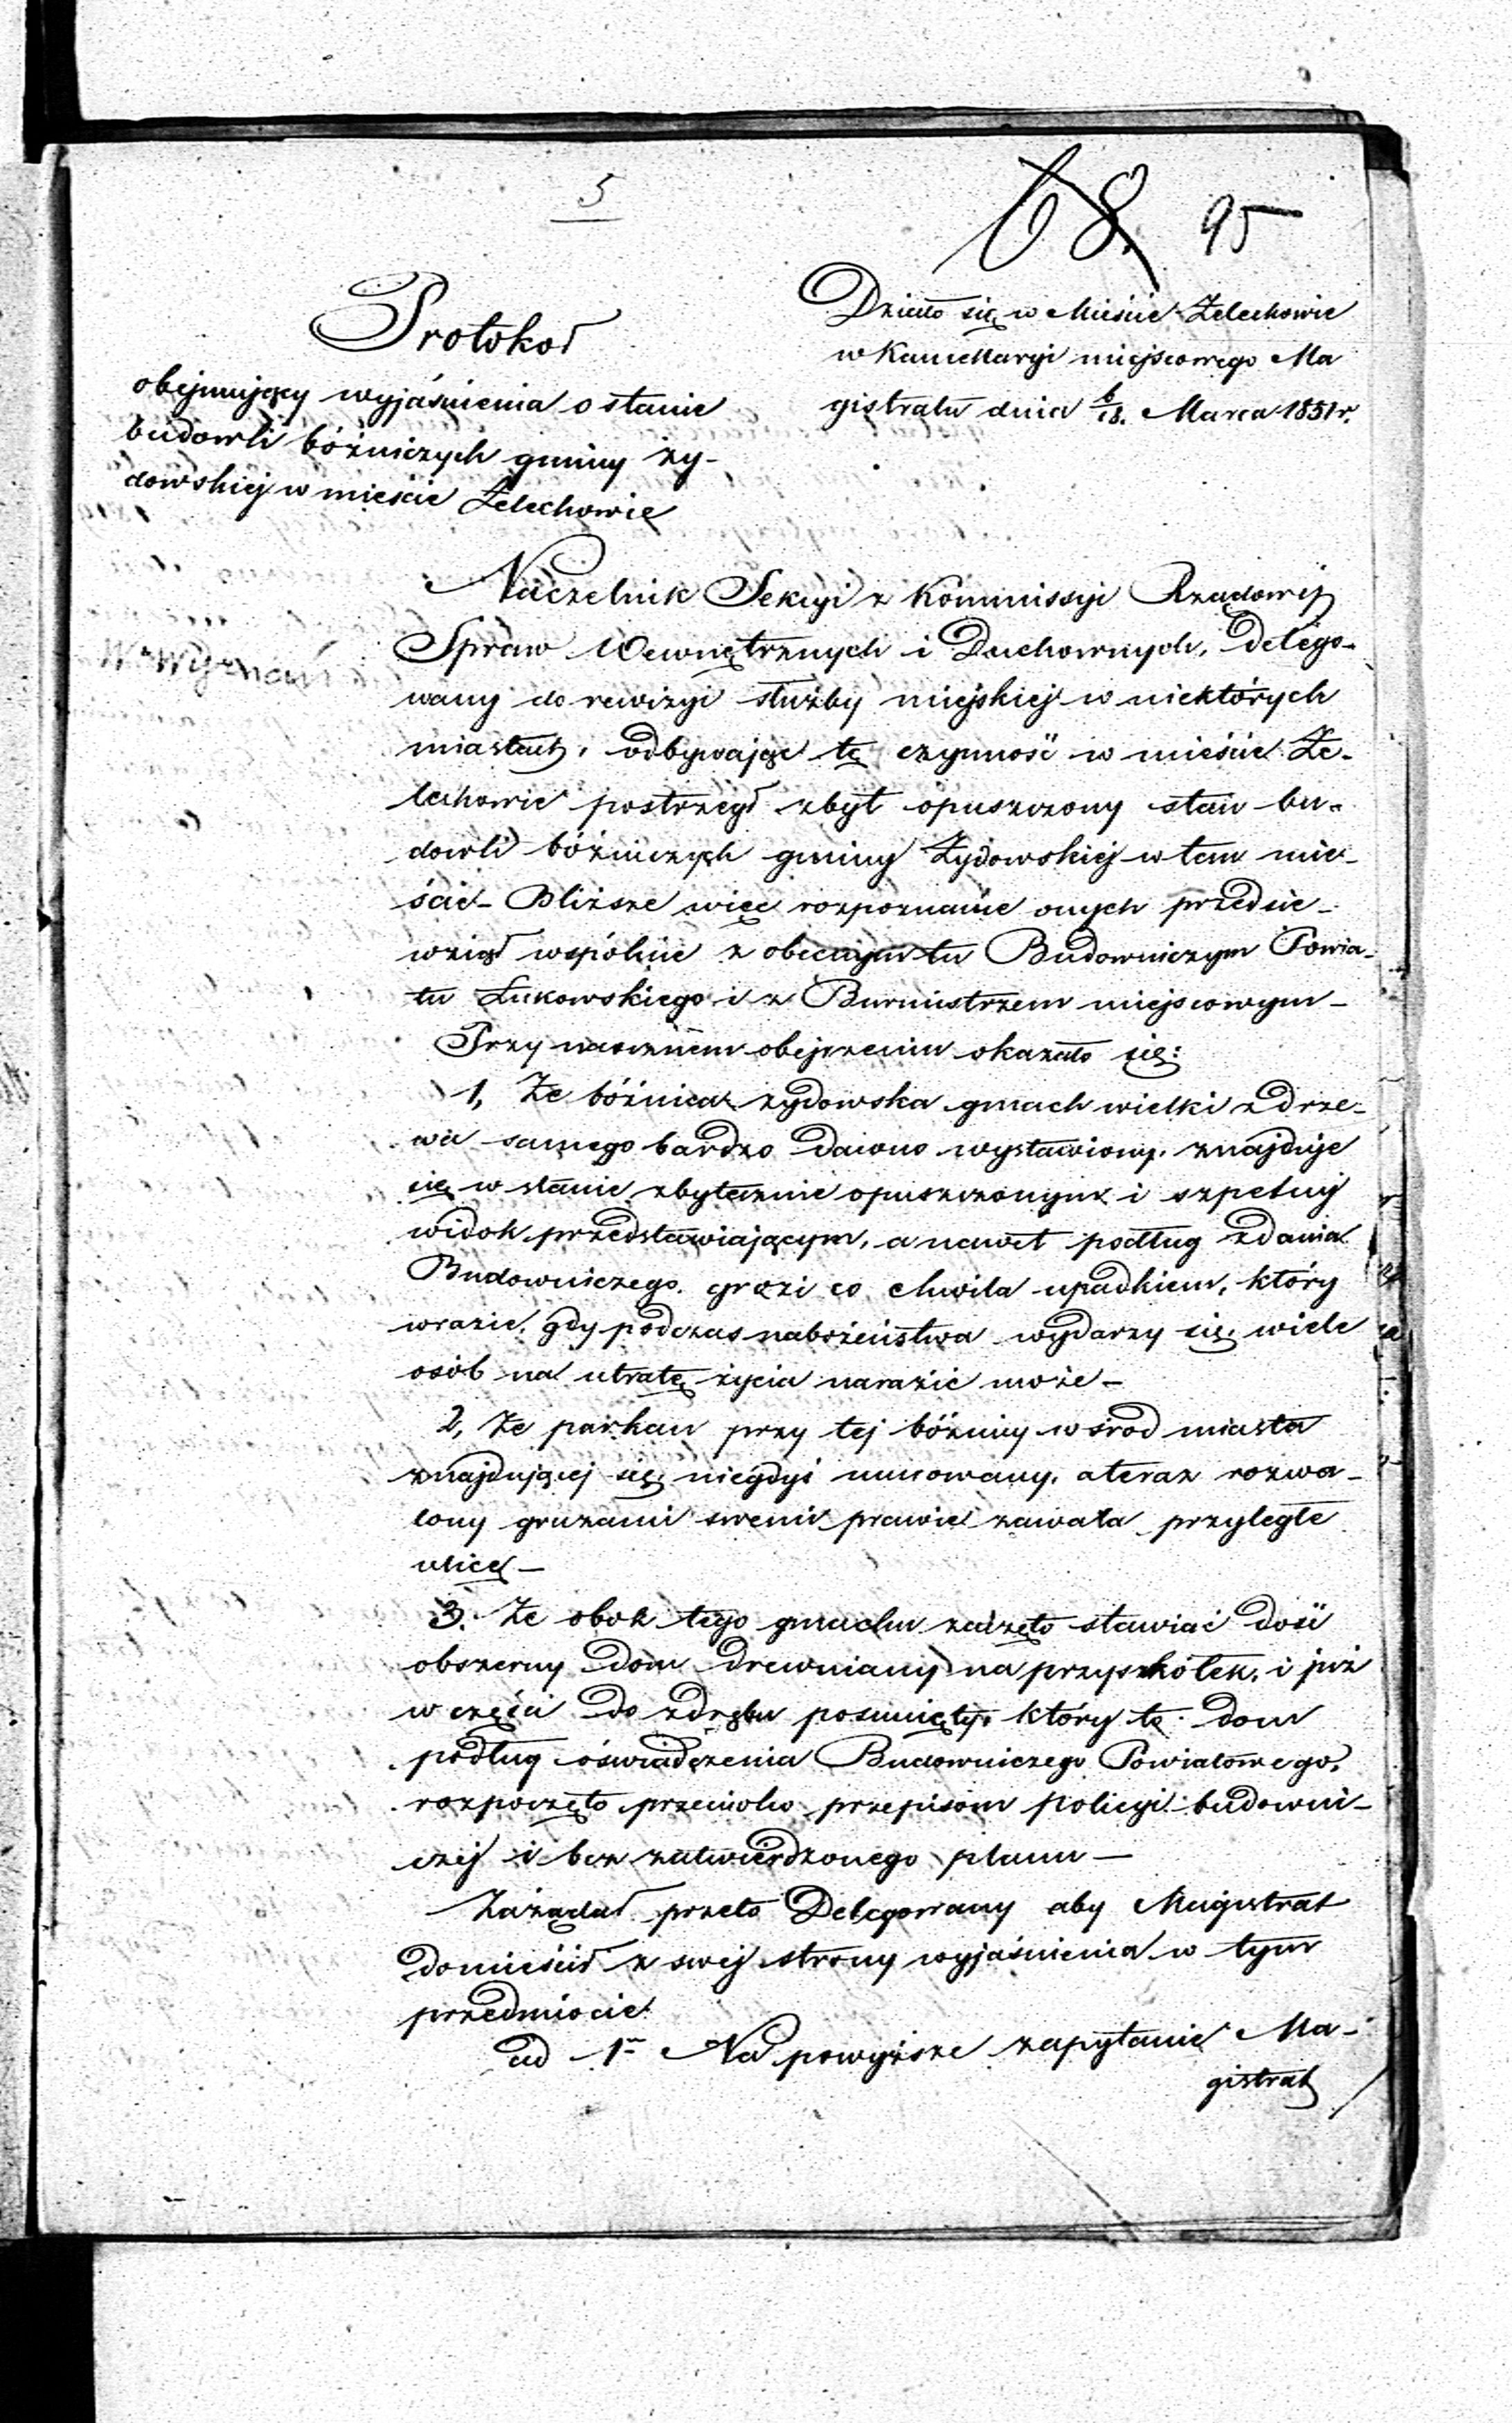 5
68. 95
Protokoł
obejmujący wyjaśnienia o stanie
budowli bóżniczych gminy ży-
dowskiej w mieście Żelechowie
Działo się w Mieście Żelechowie
w Kancellaryi miejscowego Ma
gistratu dnia 6/18. Marca 1851 r.
Naczelnik Sekcyi z Kommissyi Rządowej
Spraw Wewnętrznych i Duchownych, Delego-
wany do rewizyi służby miejskiej w niektórych
miastach, odbywając tę czynność w mieście Że-
lechowie postrzegł zbyt opuszczony stan bu-
dowli bóżniczych gminy Żydowskiej w tem mie-
ście - Bliższe więc rozpoznanie onych przedsie-
wziął wspólnie z obecnym tu Budowniczym Powia-
tu Łukowskiego i z Burmistrzem miejscowym -
Przy naocznem obejrzeniu okazało się:
1, Że bóżnica żydowska gmach wielki z drze-
wa samego bardzo dawno wystawiony, znajduje
się w stanie zbytecznie opuszczonym i szpetny
widok przedstawiającym, a nawet podług zdania
Budowniczego, grozi co chwila upadkiem, który
w razie, gdy podczas nabożeństwa wydarzy się, wiele
osób na utratę życia narazić może -
2, Że parkan przy tej bóżnicy wśród miasta
znajdującej się, niegdyś murowany, a teraz rozwa-
lony gruzami swemi prawie zawala przyległe
ulice -
3. Że obok tego gmachu zaczęto stawiać dość
obszerny dom drewniany na przyszkółek, i już
w części do zdrębu posunięty, który to dom
podług oświadczenia Budowniczego Powiatowego,
rozpoczęto przeciwko przepisom policyi budowni-
czej i bez zatwierdzonego planu -
Zażądał przeto Delegowany aby Magistrat
domieścił z swej strony wyjaśnienia w tym
przedmiocie
ad 1m Na powyższe zapytanie Ma-
gistrat